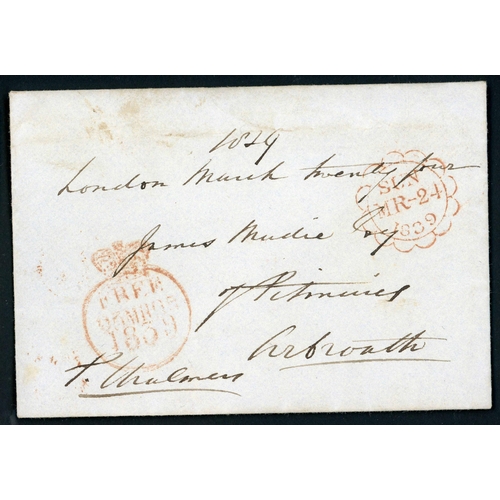 1839
London March twenty four
SUN
MR-24
1839
James Mudie Esq
of Pitmuies
Arbroath
FREE
25MR25
1839
P Chalmers